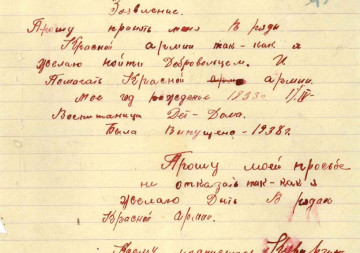 Заявление.
Прошу принять меня в ряды
Красной армии так-как я
желаю пойти Добровольцем. И
Помогать Красной армии.
Мой год рождения
Воспитаница Дет-Дома.
Была Выпущена-1938г.
Прошу моей прозьбе
не отказать так-как я
желаю Быть в рядах
Красной Армии.